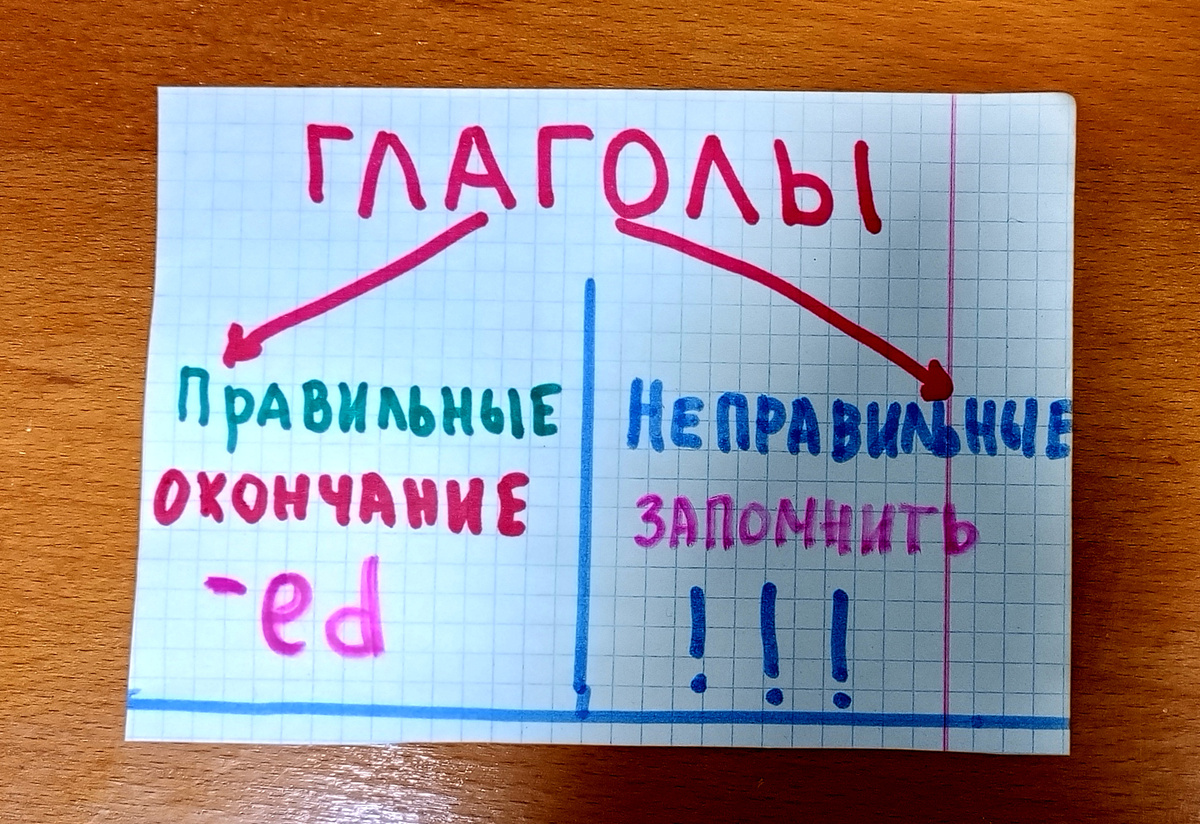 ГЛАГОЛЫ
Правильные
Неправильные
окончание
запомнить
-ed
!!!